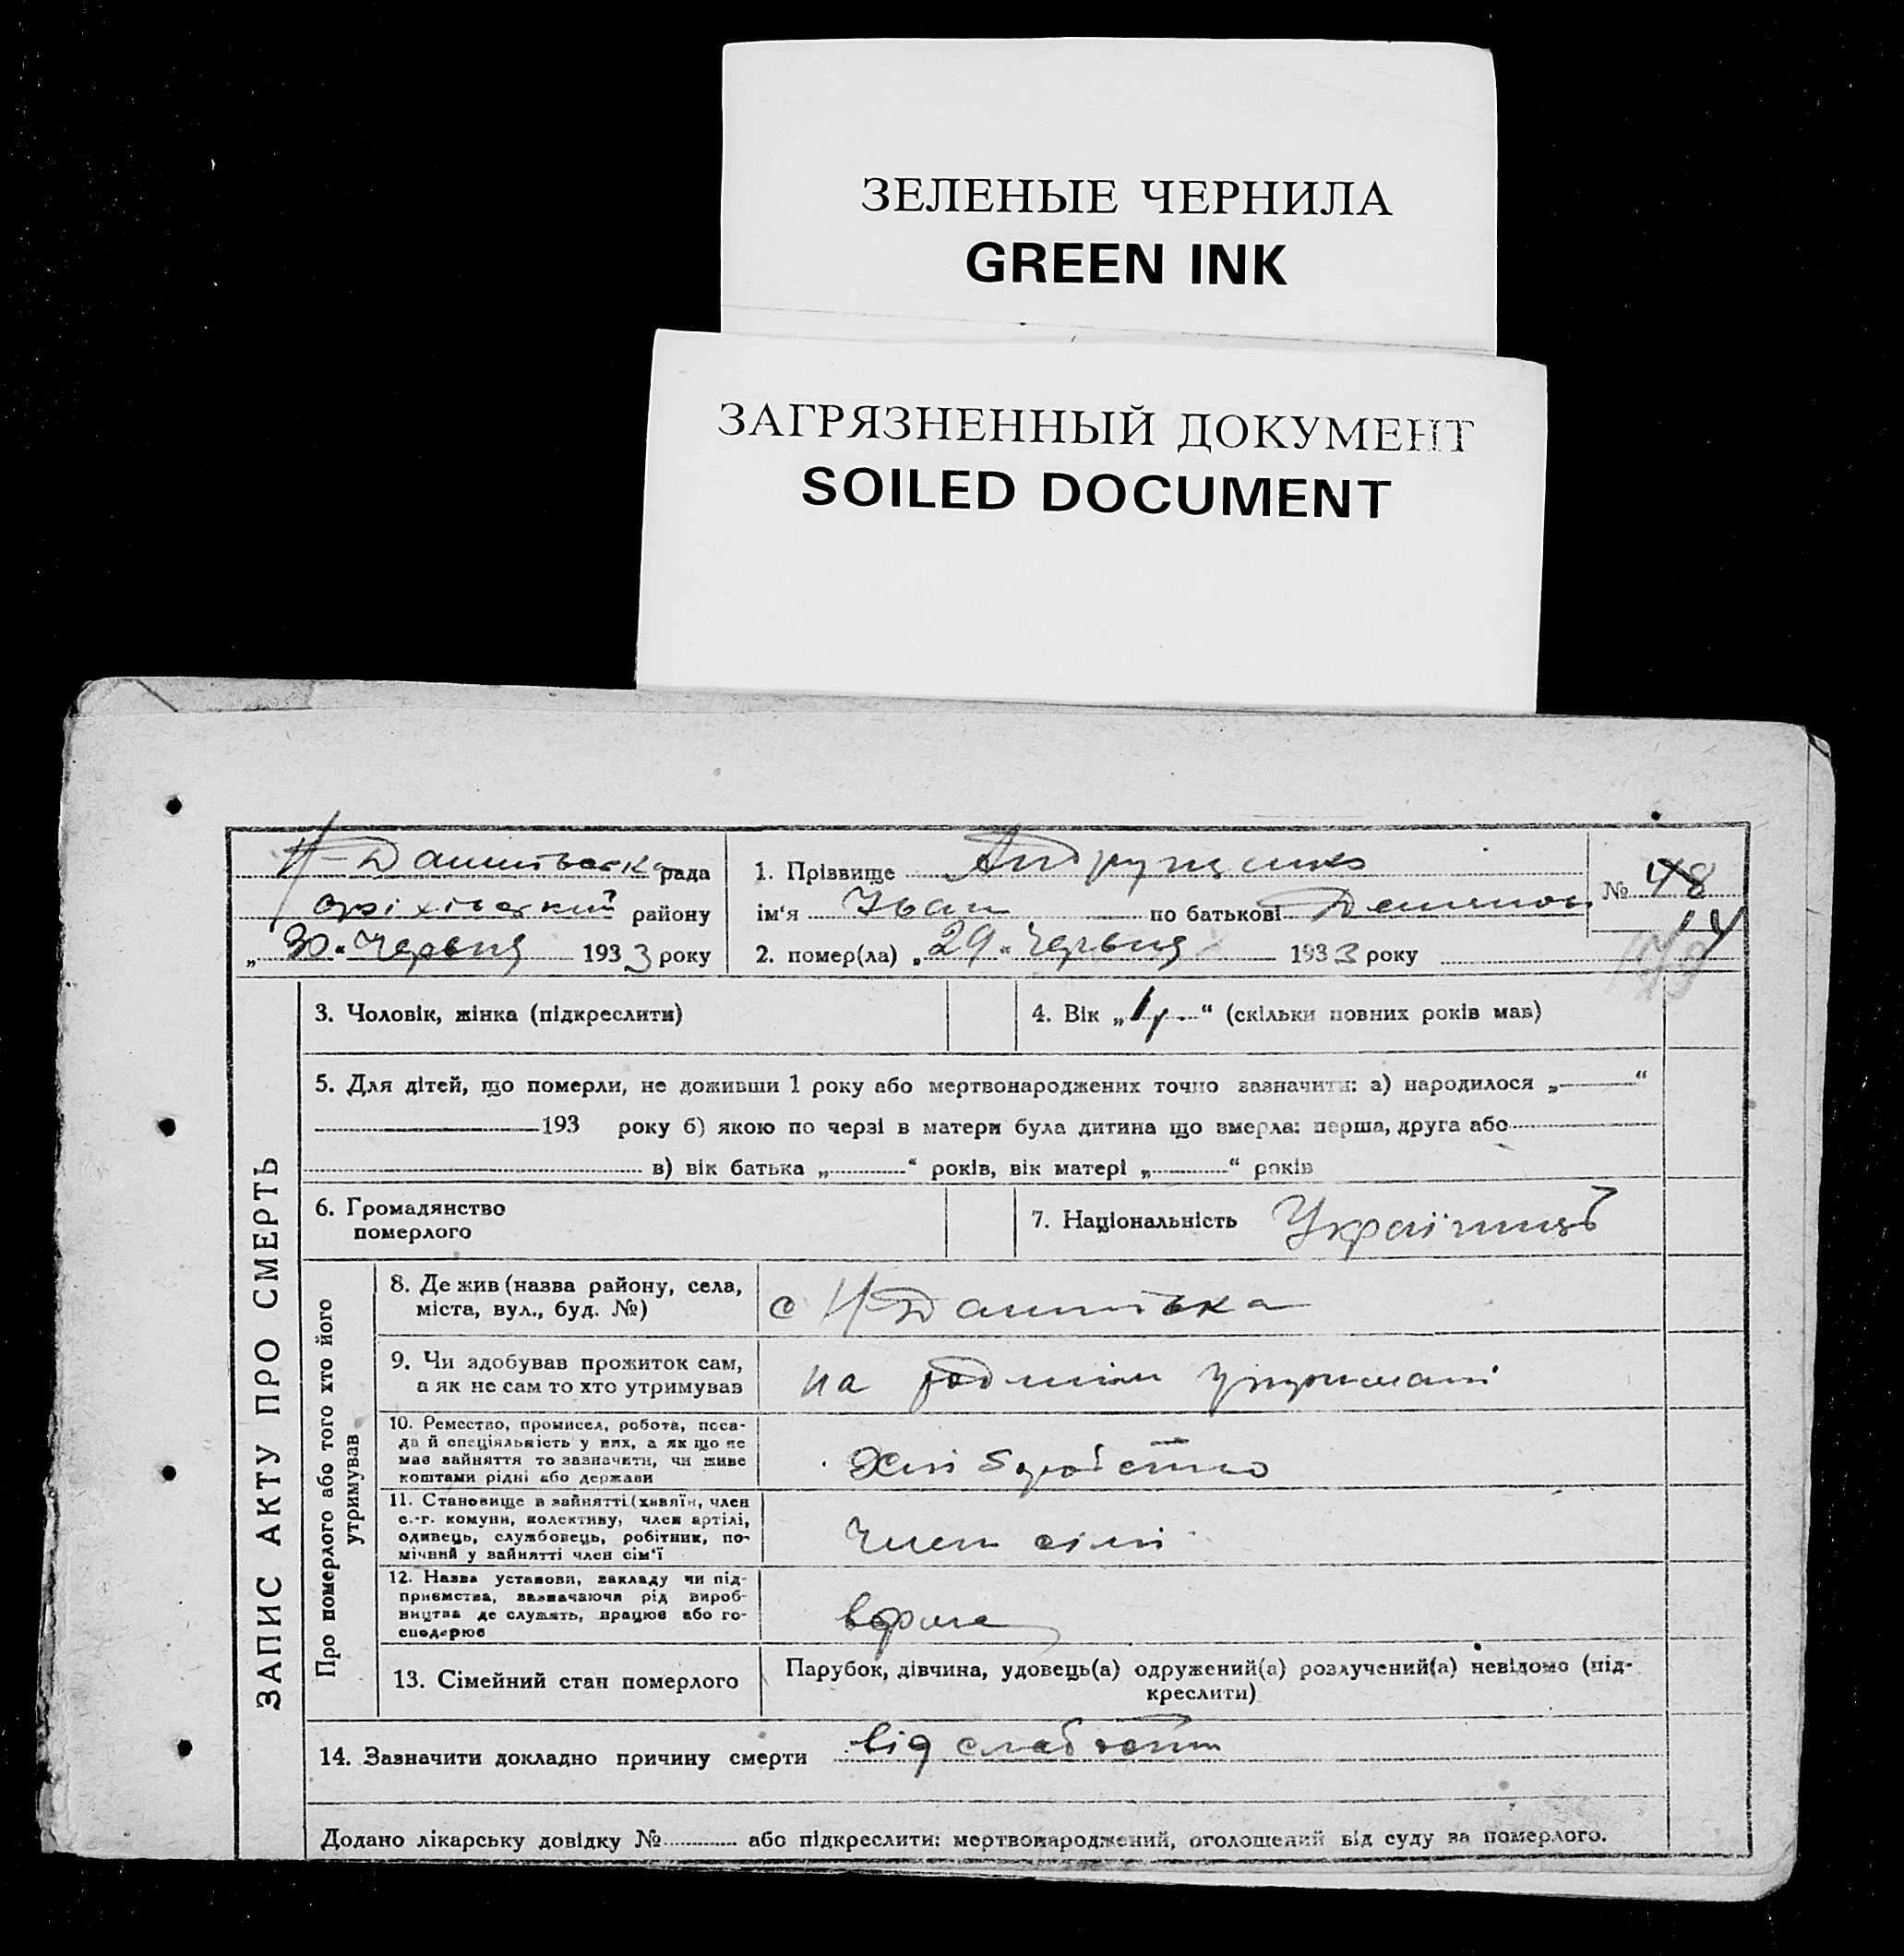 ЗЕЛЕНЫЕ ЧЕРНИЛА
GREEN INK
ЗАГРЯЗНЕННЫЙ ДОКУМЕНТ
SOILED DOCUMENT
Н-Данилівська рада
Оріхівський району
„30“ Червня 1933 року
1. Прізвище Андрущенко
ім‘я Іван по батькові
2. помер(ла) „29“ Червня 1933 року
№ 48
14
ЗАПИС АКТУ ПРО СМЕРТЬ
3. Чоловік, жінка (підкреслити)
4. Вік „1р.“ (скільки повних років мав)
5. Для дітей, що померли, не доживши 1 року або мертвонароджених точно зазначити: а) народилося „ “
193 року б) якою по черзі в матери була дитина що вмерла: перша, друга або
в) вік батька „ “ років, вік матері „ “ років
6. Громадянство
померлого
7. Національність Українець
Про померлого або того хто його
утримував
8. Де жив (назва району, села,
міста, вул., буд. №)
с Н-Данилівка
9. Чи здобував прожиток сам,
а як не сам то хто утримував
на утриманні
10. Ремество, промисел, робота, поса-
да й спеціяльність у них, а як що не
має зайняття то зазначити, чи живе
коштами рідні або держави
Хліборобство
11. Становище в зайнятті (хазяїн, член
с.-г. комуни, колективу, член артілі,
одивець, службовець, робітник, по-
мічний у зайнятті член сім‘ї
член сімї
12. Назва установи, закладу чи під-
приємства, зазначаючи рід вироб-
ництва де служить, працює або го-
сподарює
13. Сімейний стан померлого
Парубок, дівчина, удовець(а) одружений(а) розлучений(а) невідомо (під-
креслити)
14. Зазначити докладно причину смерти від слабости
Додано лікарську довідку № або підкреслити: мертвонароджений, оголошений від суду за померлого.